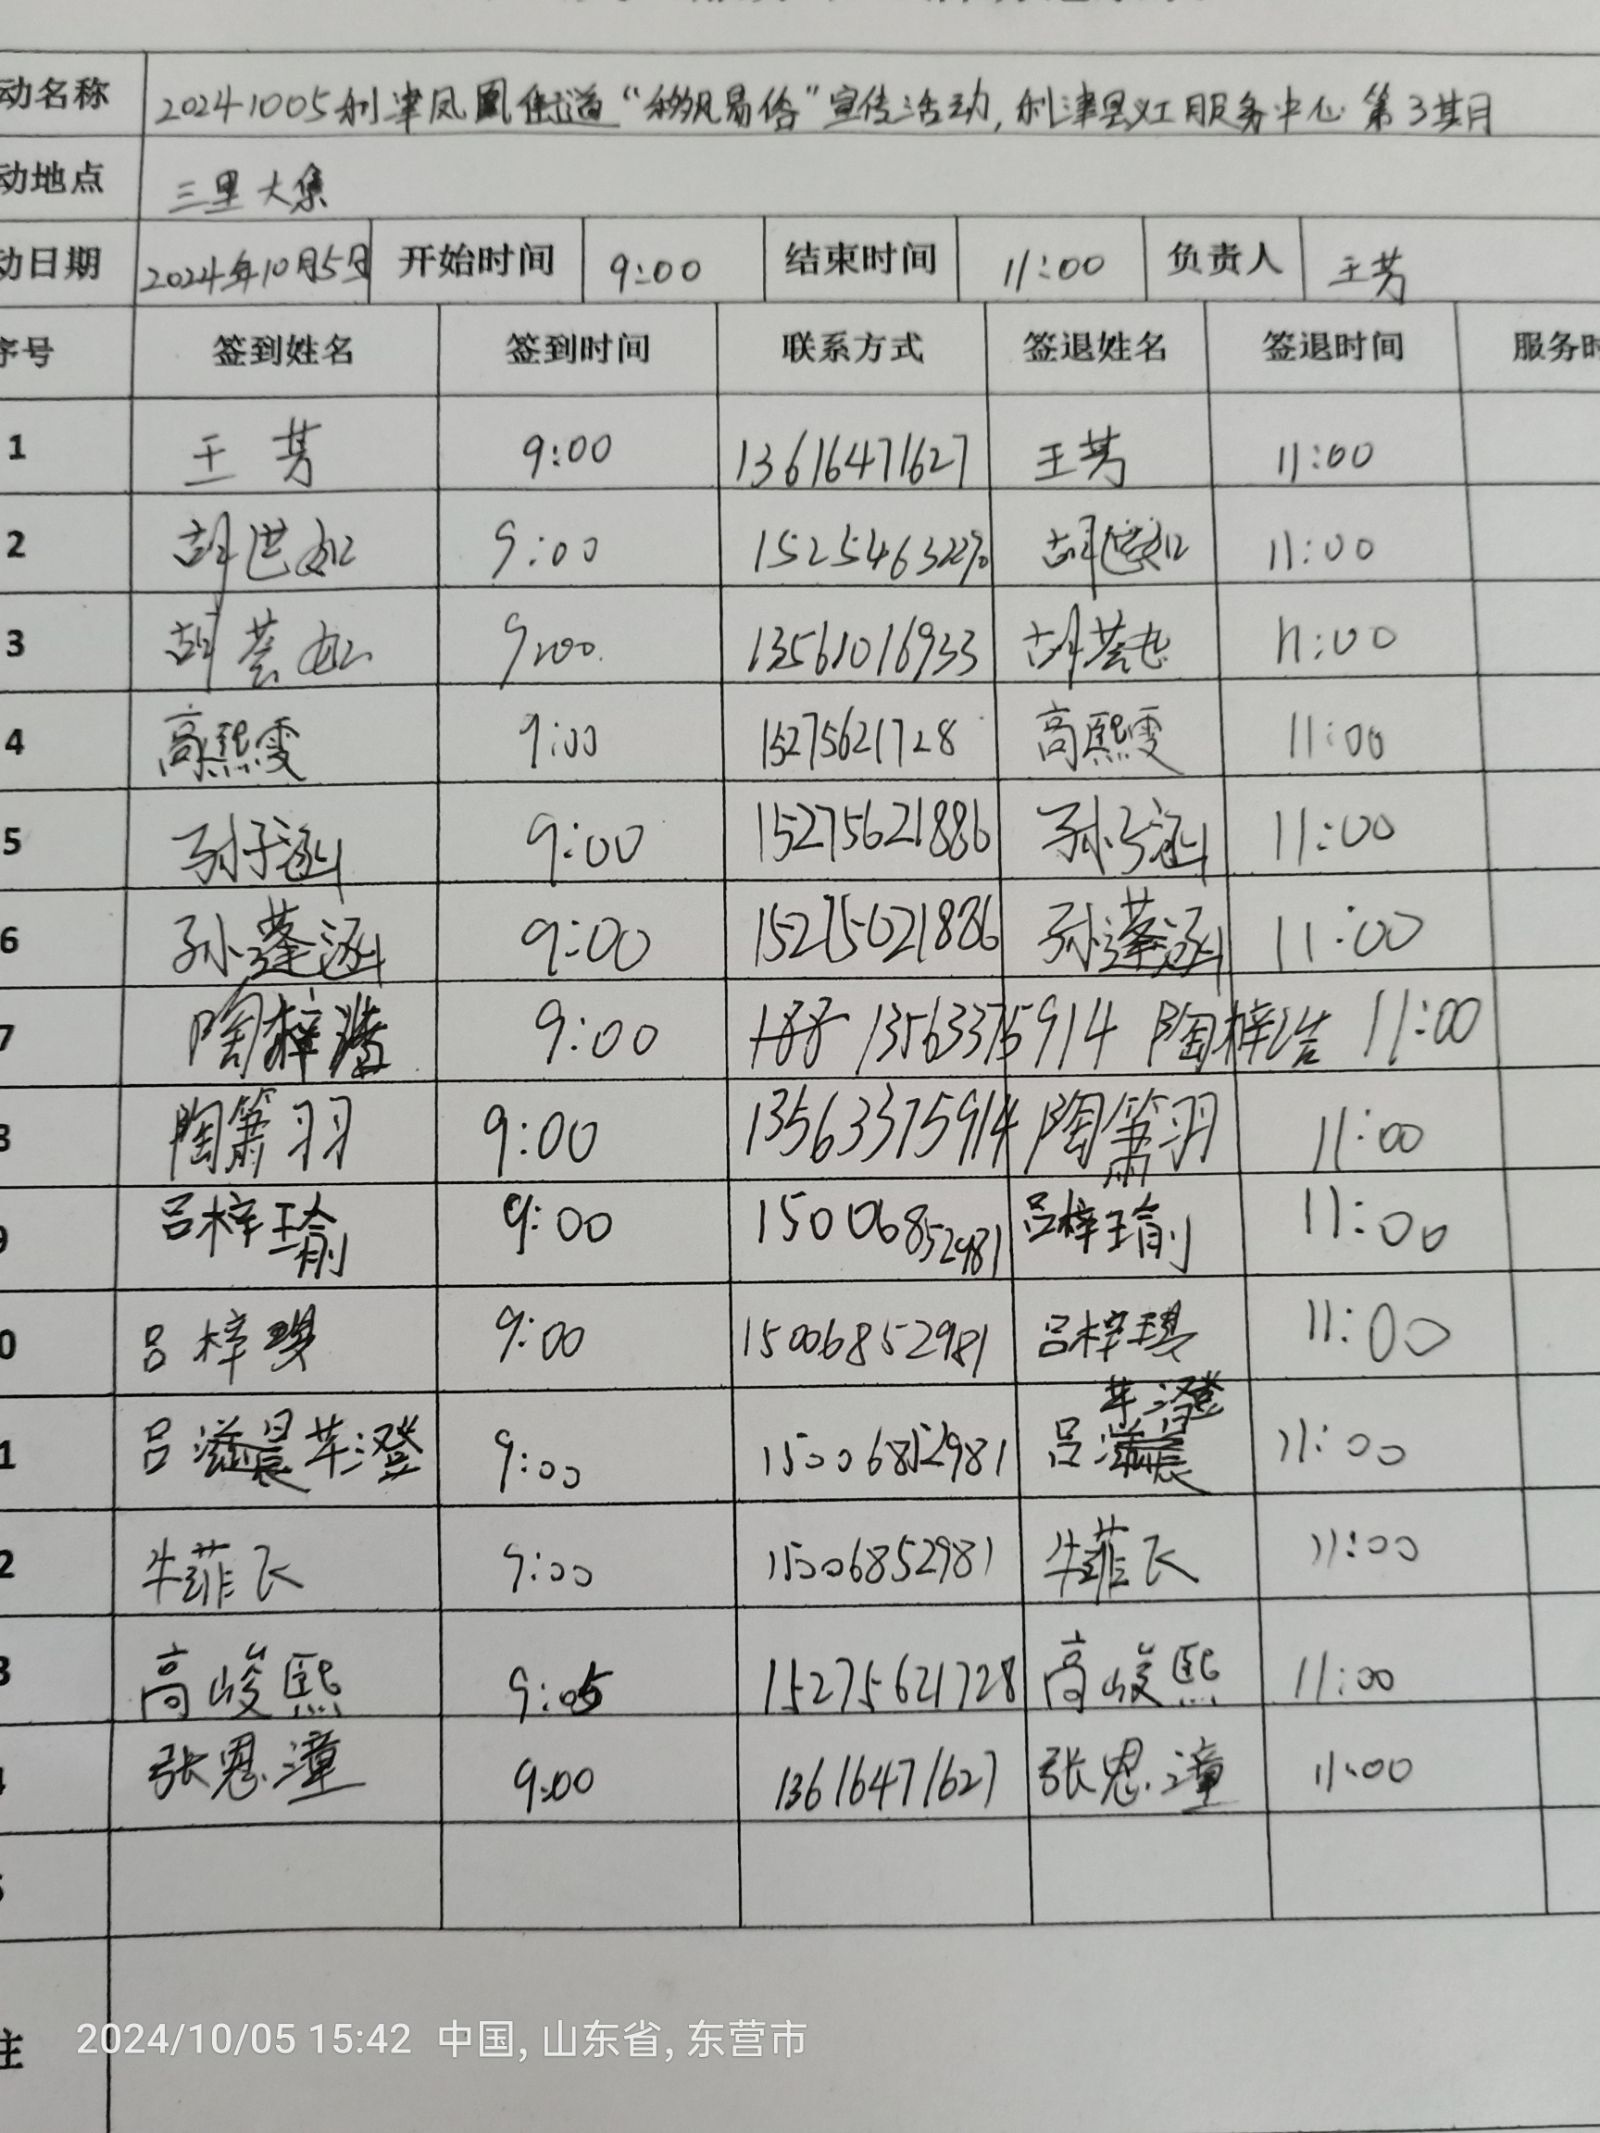 动名称 20241005利津凤凰街道“移风易俗”宣传活动,利津县义工服务中心 第3期
动地点 三里大集
动日期 2024年10月5日 开始时间 9:00 结束时间 11:00 负责人 王芳
序号 签到姓名 签到时间 联系方式 签退姓名 签退时间 服务时
1 王芳 9:00 13616471627 王芳 11:00
2 9:00 11:00
3 9:00 13561016933 11:00
4 高熙雯 9:00 15275621728 高熙雯 11:00
5 孙子涵 9:00 15275621886 孙子涵 11:00
6 孙蓬涵 9:00 15275621886 孙蓬涵 11:00
7 陶梓浩 9:00 13563375914 陶梓浩 11:00
8 陶箫羽 9:00 13563375914 陶箫羽 11:00
9 吕梓瑜 9:00 15006852981 吕梓瑜 11:00
0 吕梓琪 9:00 15006852981 吕梓琪 11:00
1 吕 9:00 15006852981 吕 11:00
2 牛菲飞 9:00 15006852981 牛菲飞 11:00
3 高峻熙 9:05 15275621728 高峻熙 11:00
4 张恩潼 9:00 13616471627 张恩潼 11:00
注
2024/10/05 15:42 中国, 山东省, 东营市